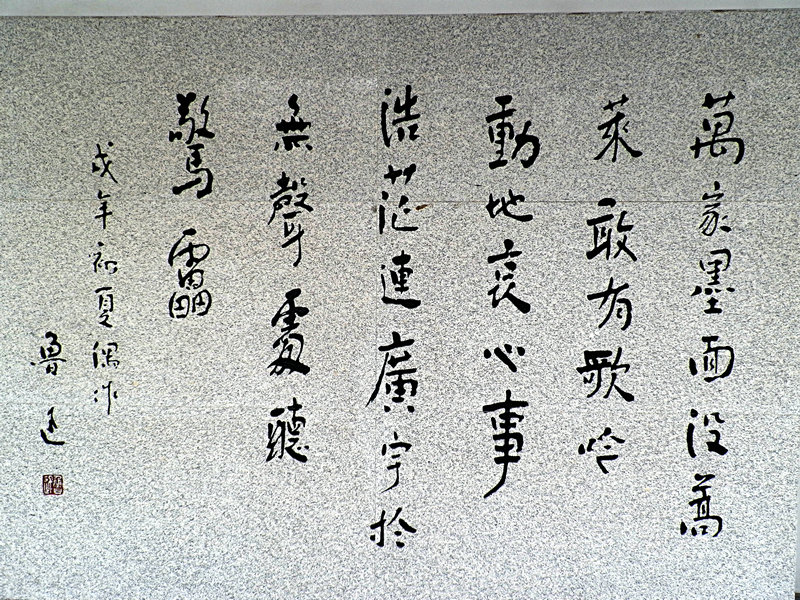 萬家墨面没蒿
萊敢有歌吟
動地哀心事
浩茫連廣宇於
無聲處聽
驚雷
戌年初夏偶作
魯迅